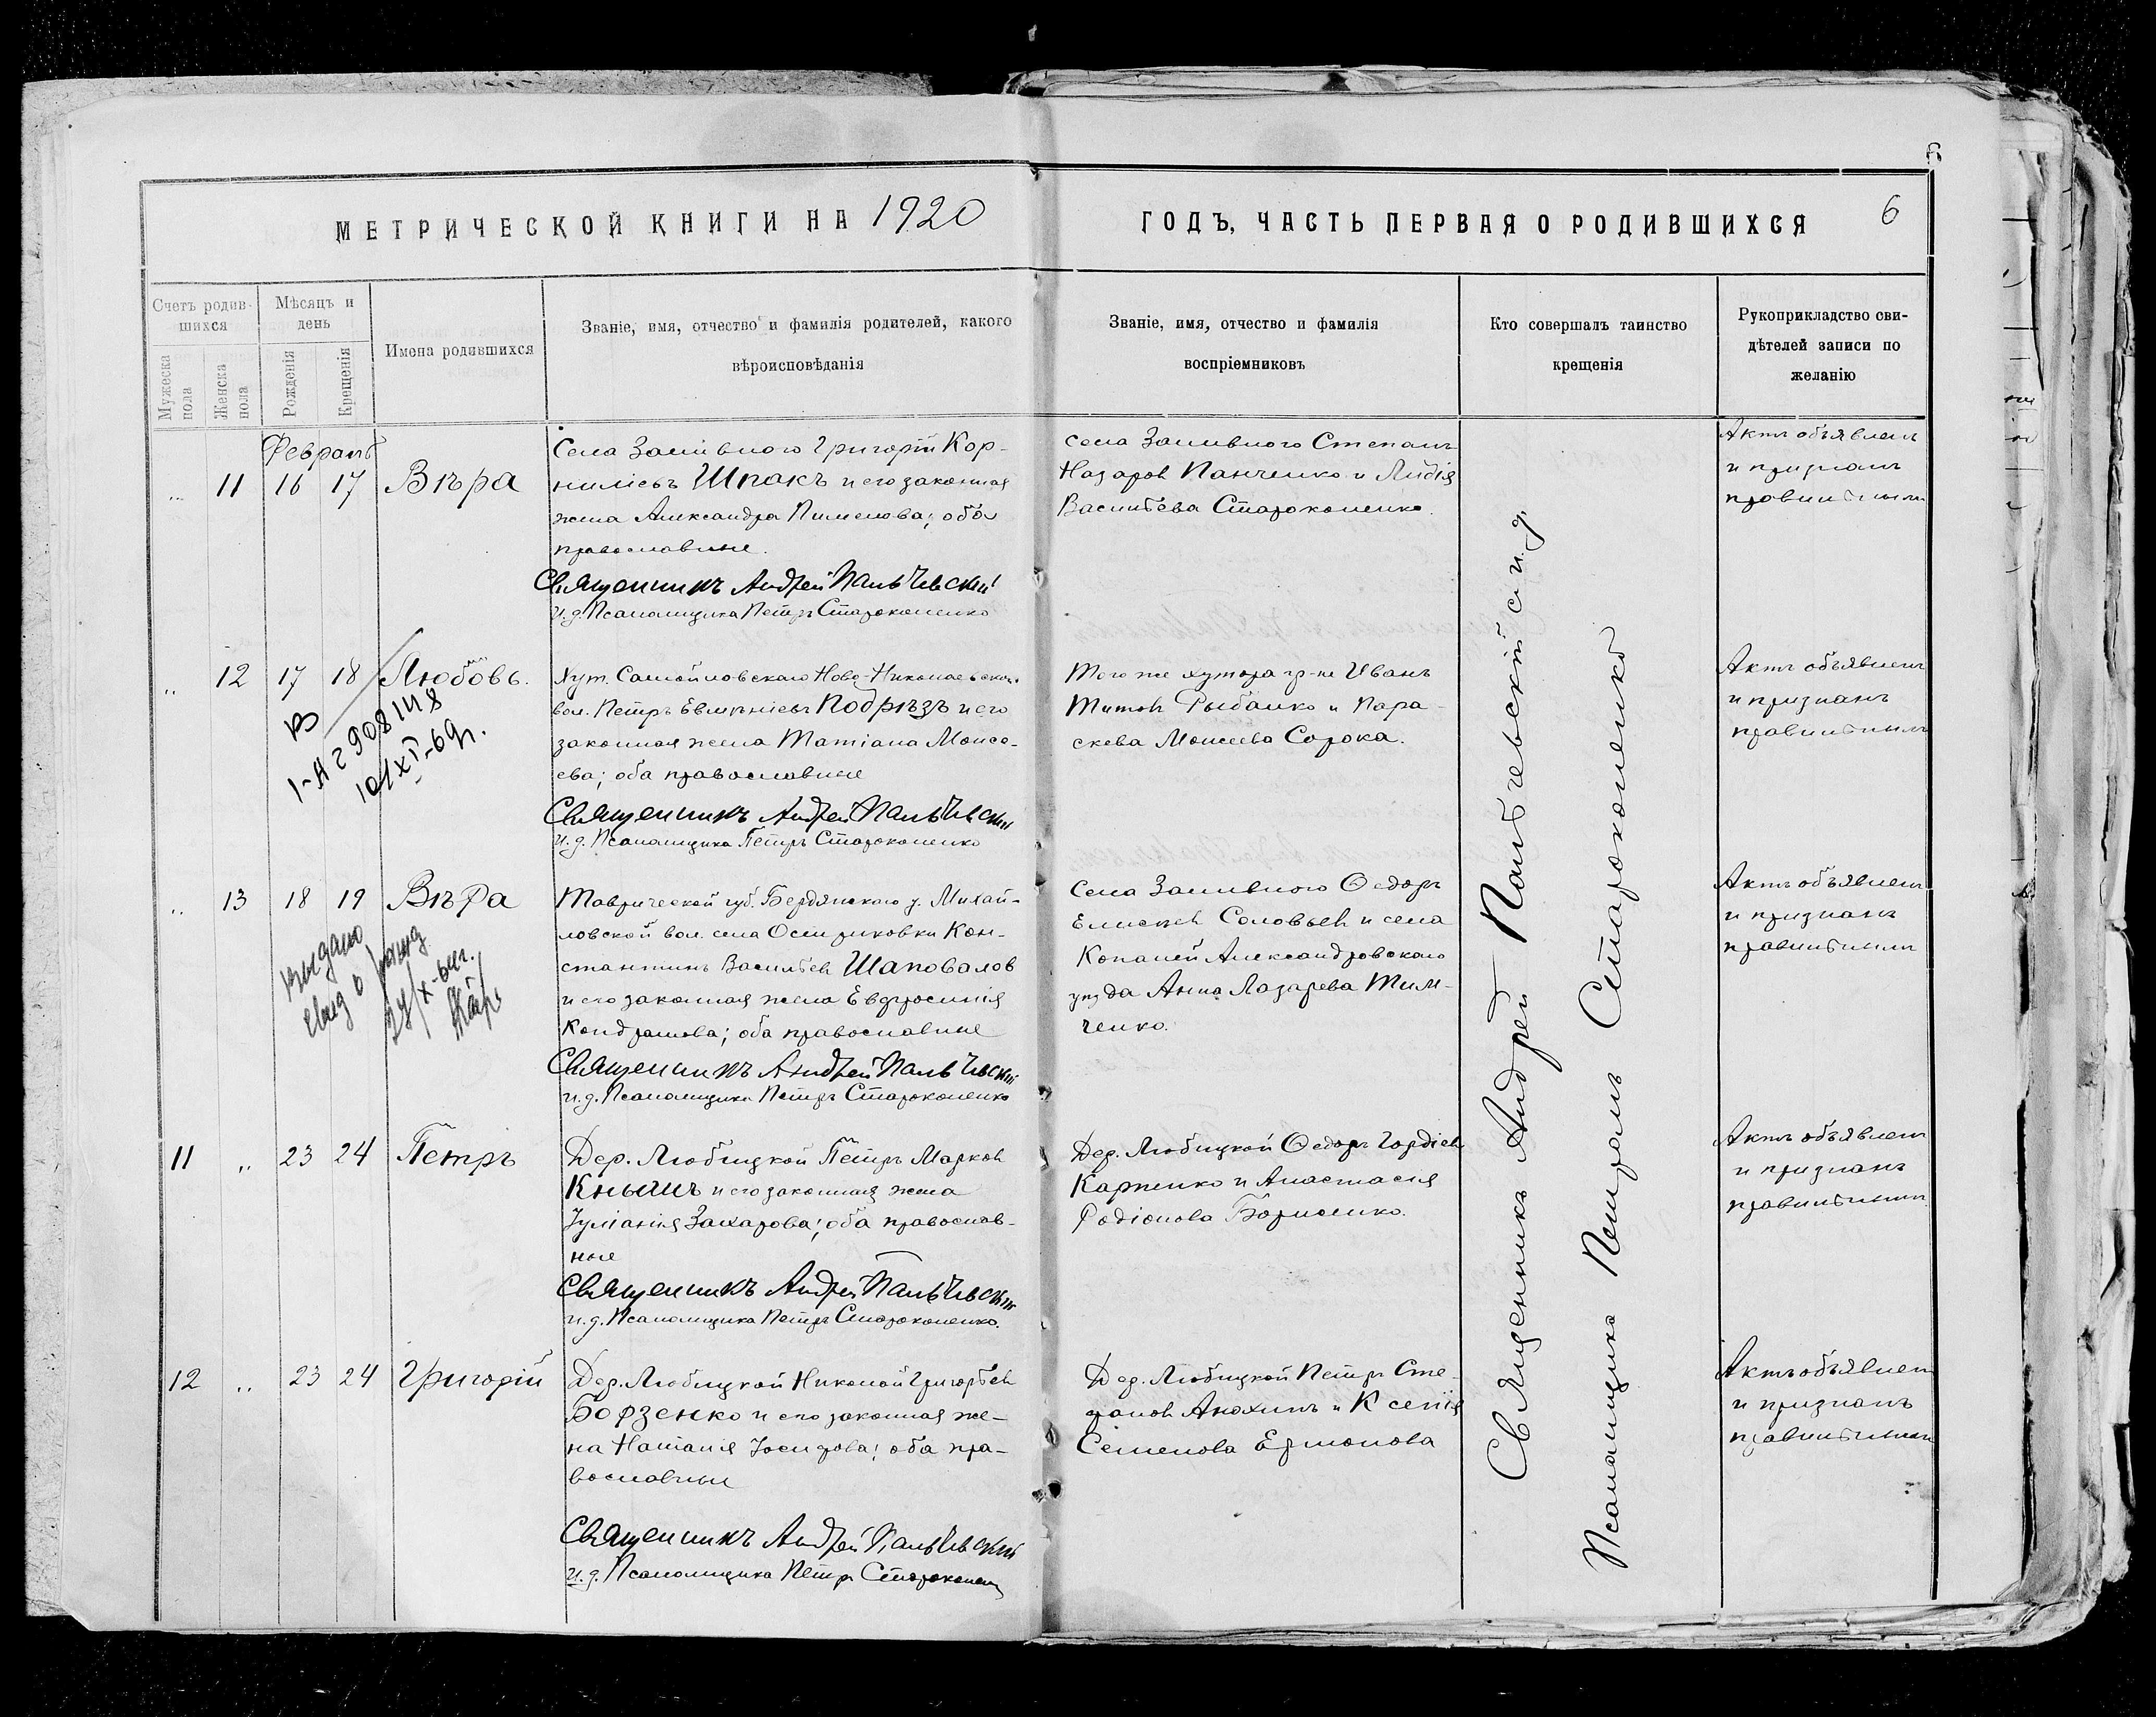 МЕТРИЧЕСКОЙ КНИГИ НА 1920
ГОДЪ, ЧАСТЬ ПЕРВАЯ О РОДИВШИХСЯ
6
Счетъ родив-
шихся
Мужеска
пола
Женска
пола
Мѣсяцъ и
день
Рожденія
Крещенія
Имена родившихся
Званіе, имя, отчество и фамилія родителей, какого
вѣроисповѣданія
Званіе, имя, отчество и фамилія
воспріемниковъ
Кто совершалъ таинство
крещенія
Рукоприкладство сви-
дѣтелей записи по
желанію
Февраль
„ 11 16 17 Вѣра
Села Заливного Григорій Кор-
ниліевъ Шпакъ и его законная
жена Александра Пименова; оба
православные.
Священникъ Андрей Пальчевскій
и.д. Псаломщика Петръ Староконенко
села Заливного Степанъ
Назаровъ Панченко и Лидія
Васильева Староконенко.
Актъ объявленъ
и признанъ
правильнымъ
„ 12 17 18 Любовь.
10/XI-69г.
Хут. Самойловскаго Ново-Николаевской
вол. Петръ Евменіевъ Подрѣзъ и его
законная жена Татіана Моисе-
ева; оба православные
Священникъ Андрей Пальчевскій
и.д. Псаломщика Петръ Староконенко
Того же хутора гр-не Иванъ
Титовъ Рыбалко и Пара-
скева Моисеева Сорока.
Актъ объявленъ
и признанъ
правильнымъ
„ 13 18 19 Вѣра
выдано
свид о рожд
Таврической губ. Бердянскаго у. Михай-
ловской вол. села Осипиковки Кон-
стантинъ Васильевъ Шаповаловъ
и его законная жена Евфросинія
Кондратова; оба православные
Священникъ Андрей Пальчевскій
и.д. Псаломщика Петръ Староконенко
Села Заливного Ѳедоръ
Елисеевъ Соловьевъ и села
Копаней Александровскаго
уѣзда Анна Лазарева Тим-
ченко.
Актъ объявленъ
и признанъ
правильнымъ
11 „ 23 24 Петръ
Дер. Любицкой Петръ Марковъ
Кнышъ и его законная жена
Іуліанія Захарова; оба православ-
ные
Священникъ Андрей Пальчевскій
и.д. Псаломщика Петръ Староконенко.
Дер. Любицкой Ѳедоръ Гордіевъ
Карпенко и Анастасія
Родіонова Борисенко.
Актъ объявленъ
и признанъ
правильнымъ
12 „ 23 24 Григорій
Дер. Любицкой Николай Григорьевъ
Борзенко и его законная же-
на Наталія Іосифова; оба пра-
вославные
Священникъ Андрей Пальчевскій
и.д. Псаломщика Петръ Староконенко
Дер. Любицкой Петръ Сте-
фановъ Анохинъ и Ксенія
Семенова Ермолова
Актъ объявленъ
и признанъ
правильнымъ
Священникъ Андрей Пальчевскій с и.д.
Псаломщика Петромъ Староконенко